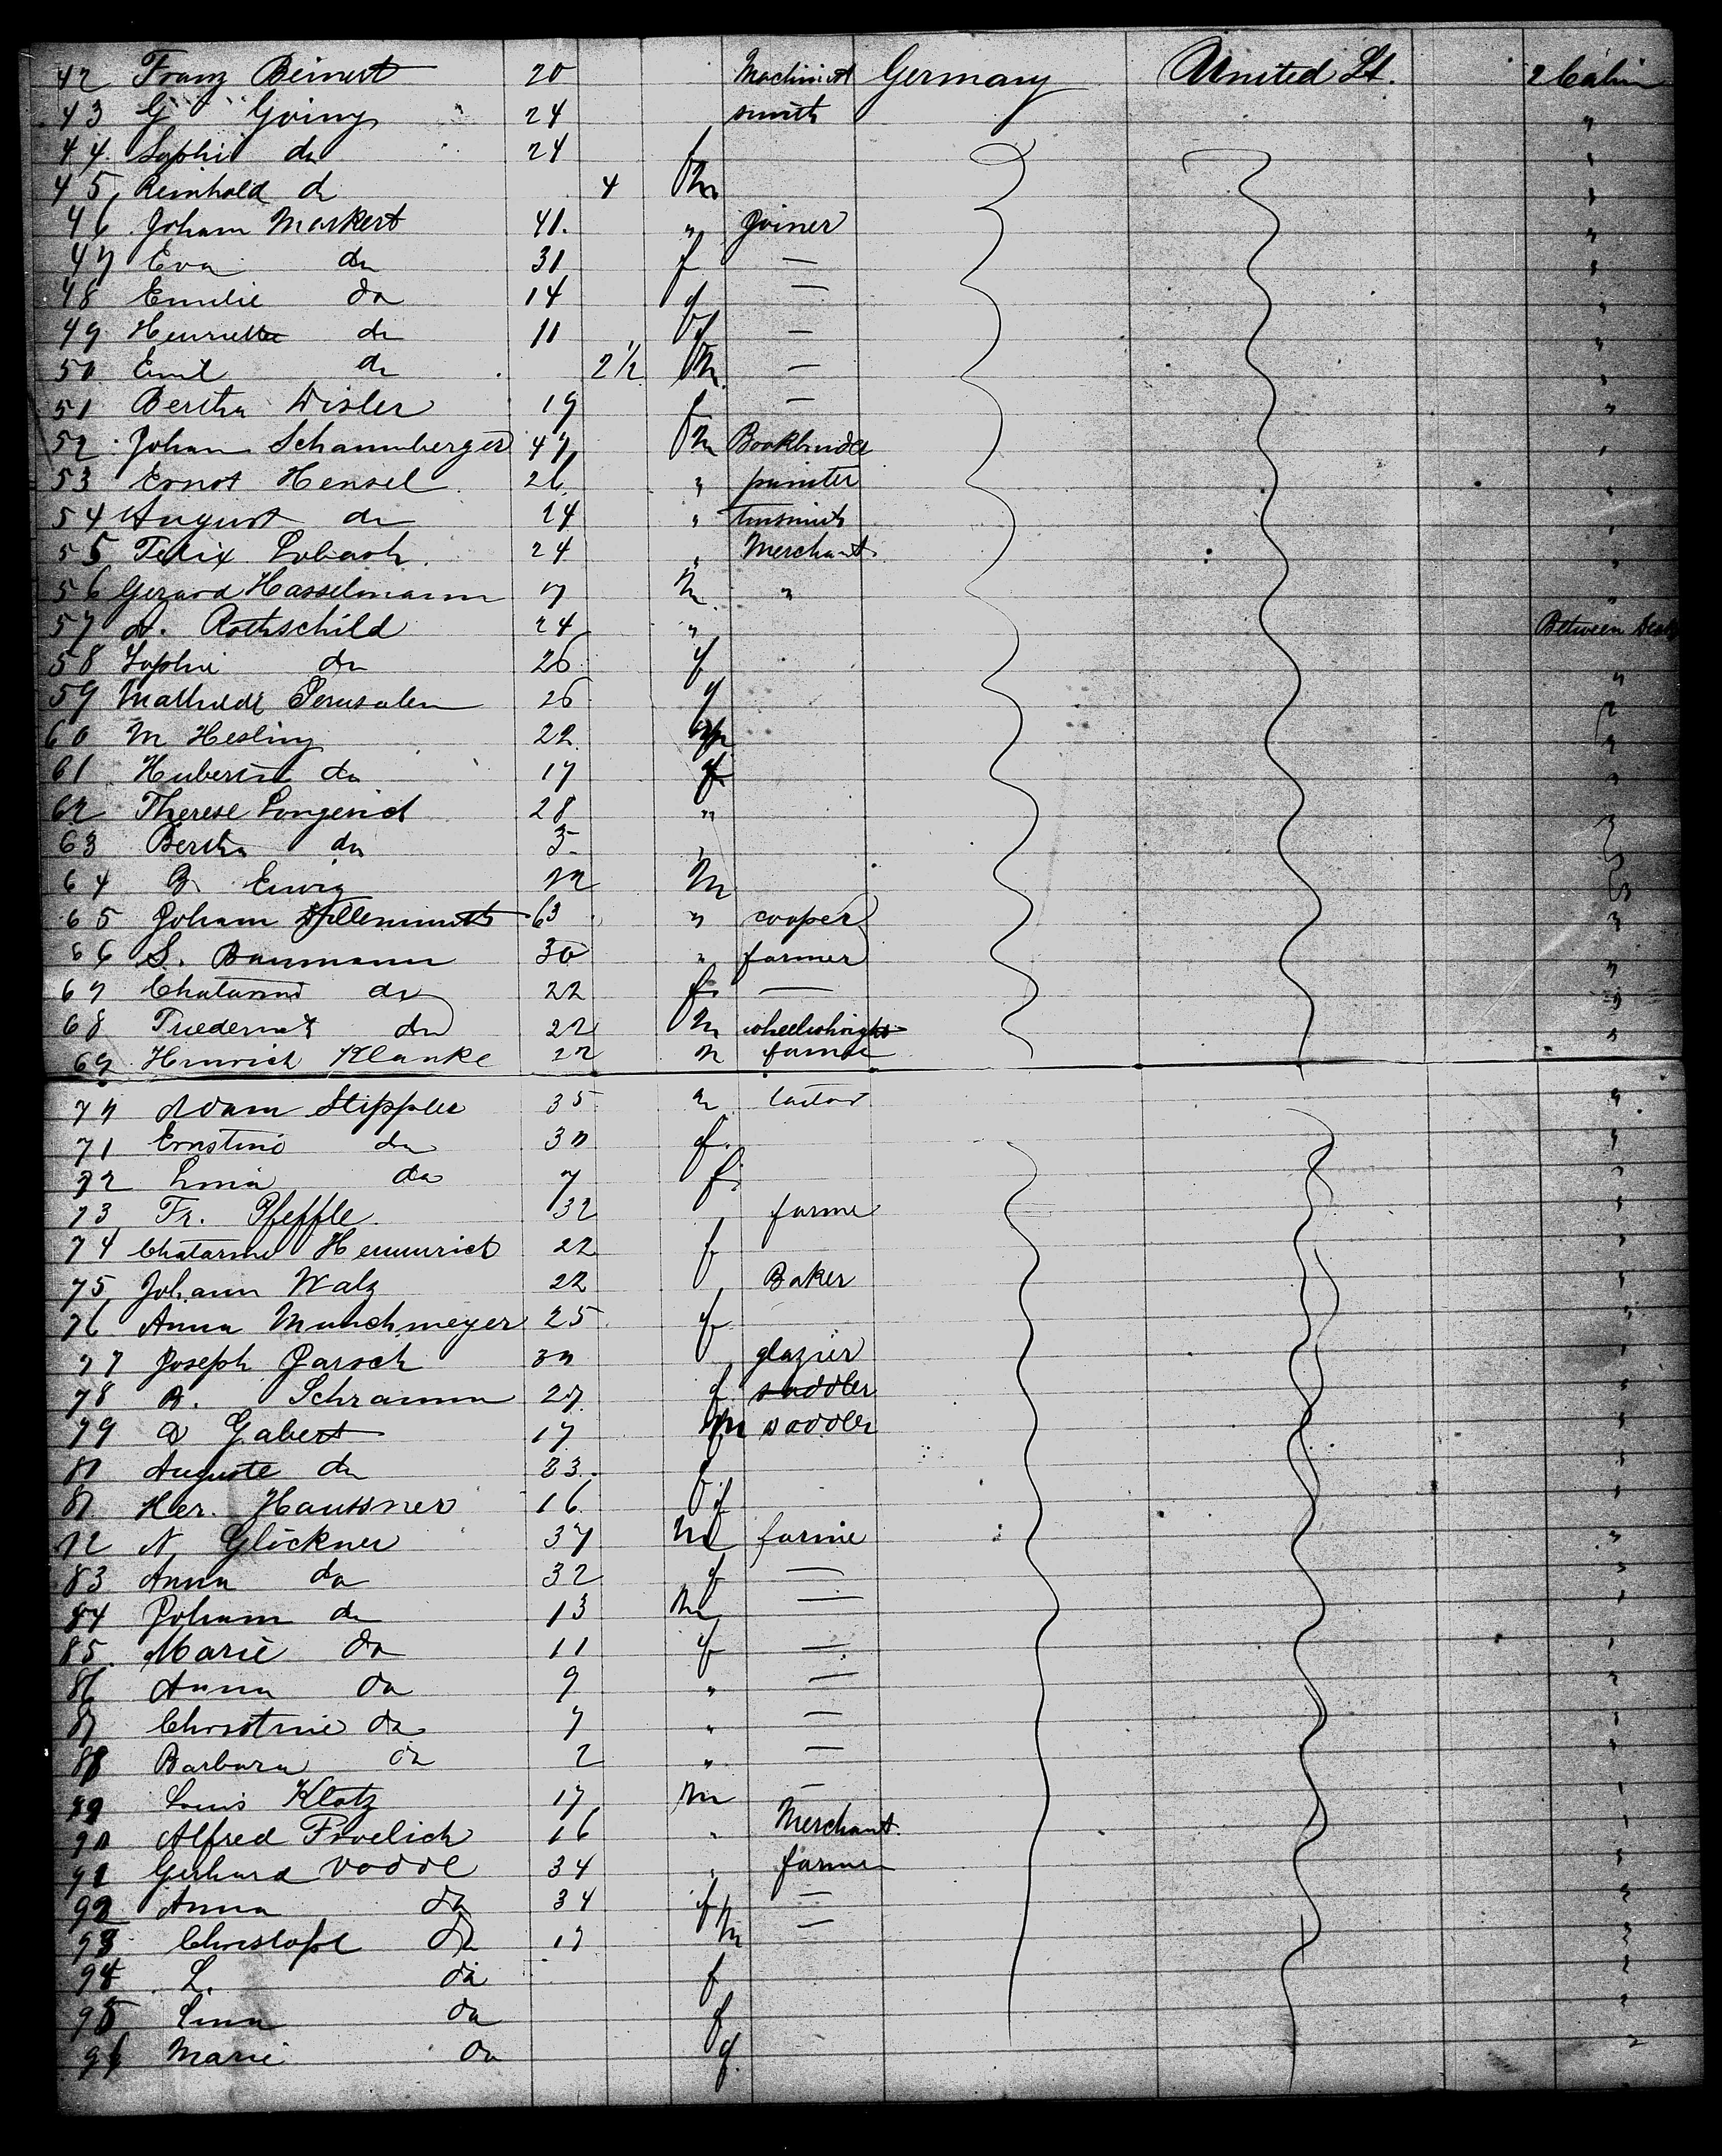 42 Franz Beinert 20 Machinist Germany United St. 2 Cabin
43 G Going 24 smith "
44 Sophi do 24 f "
45 Reinhold do 4 m "
46 Joham Markert 41. " Joiner "
47 Eva do 31 f — "
48 Emilie do 14 f — "
49 Henriette do 11 f — "
50 Emil do 2 1/2 m —  "
51 Bertha Disler 19 f — "
52 Johan Schaumberger 47 m Bookbinder "
53 Ernst Hensel 26 " painter "
54 August do 24 " tinsmith "
55 Felix Lobach 24 " Merchant "
56 Gerard Hasselmann 17 m " "
57 A. Rothschild 24 " Between Deck
58 Sophie do 26 f "
59 Mathilde Jerusalem 26 f "
60 M Hesling 22 m "
61 Hubertin do 17 f "
62 Therese Longerich 28 " "
63 Bertha do 5 " "
64 B Ewig m "
65 Joham 63 " cooper "
66 S. Baumann 30 " farmer "
67 Chatarine do 22 f — "
68 Friederick do 22 m wheelwright "
69 Hinrich Klanke 22 m farmer
70 Adam Stippler 35 m "
71 Ernstine do 30 f "
72 Lina do 7 f "
73 Fr. Pfeffle 32 farme "
74 Chatarine Hemmrich 22 f "
75 Johann Walz 22 Baker "
76 Anna Munchmeyer 25 f "
77 Joseph Jarsch 30 glazier "
78 B. Schramm 27 f saddler "
79 Gabert 17 m saddler "
80 Auguste do 23 f "
81 Her. Haussner 16 f "
82 N Glöckner 37 m farme "
83 Anna do 32 f — "
84 Joham do 13 m — "
85 Marie do 11 f — "
86 Anna do 9 " — "
87 Christine do 7 " — "
88 Barbara do 2 " — "
89 Louis Klotz 17 m — "
90 Alfred Froelich 16 " Merchant "
91 Gerhard Vodde 34 " farmer "
92 Anna do 34 f — "
93 Christoph do m — "
94 L. do f "
95 Linna do f "
96 Marie do f "